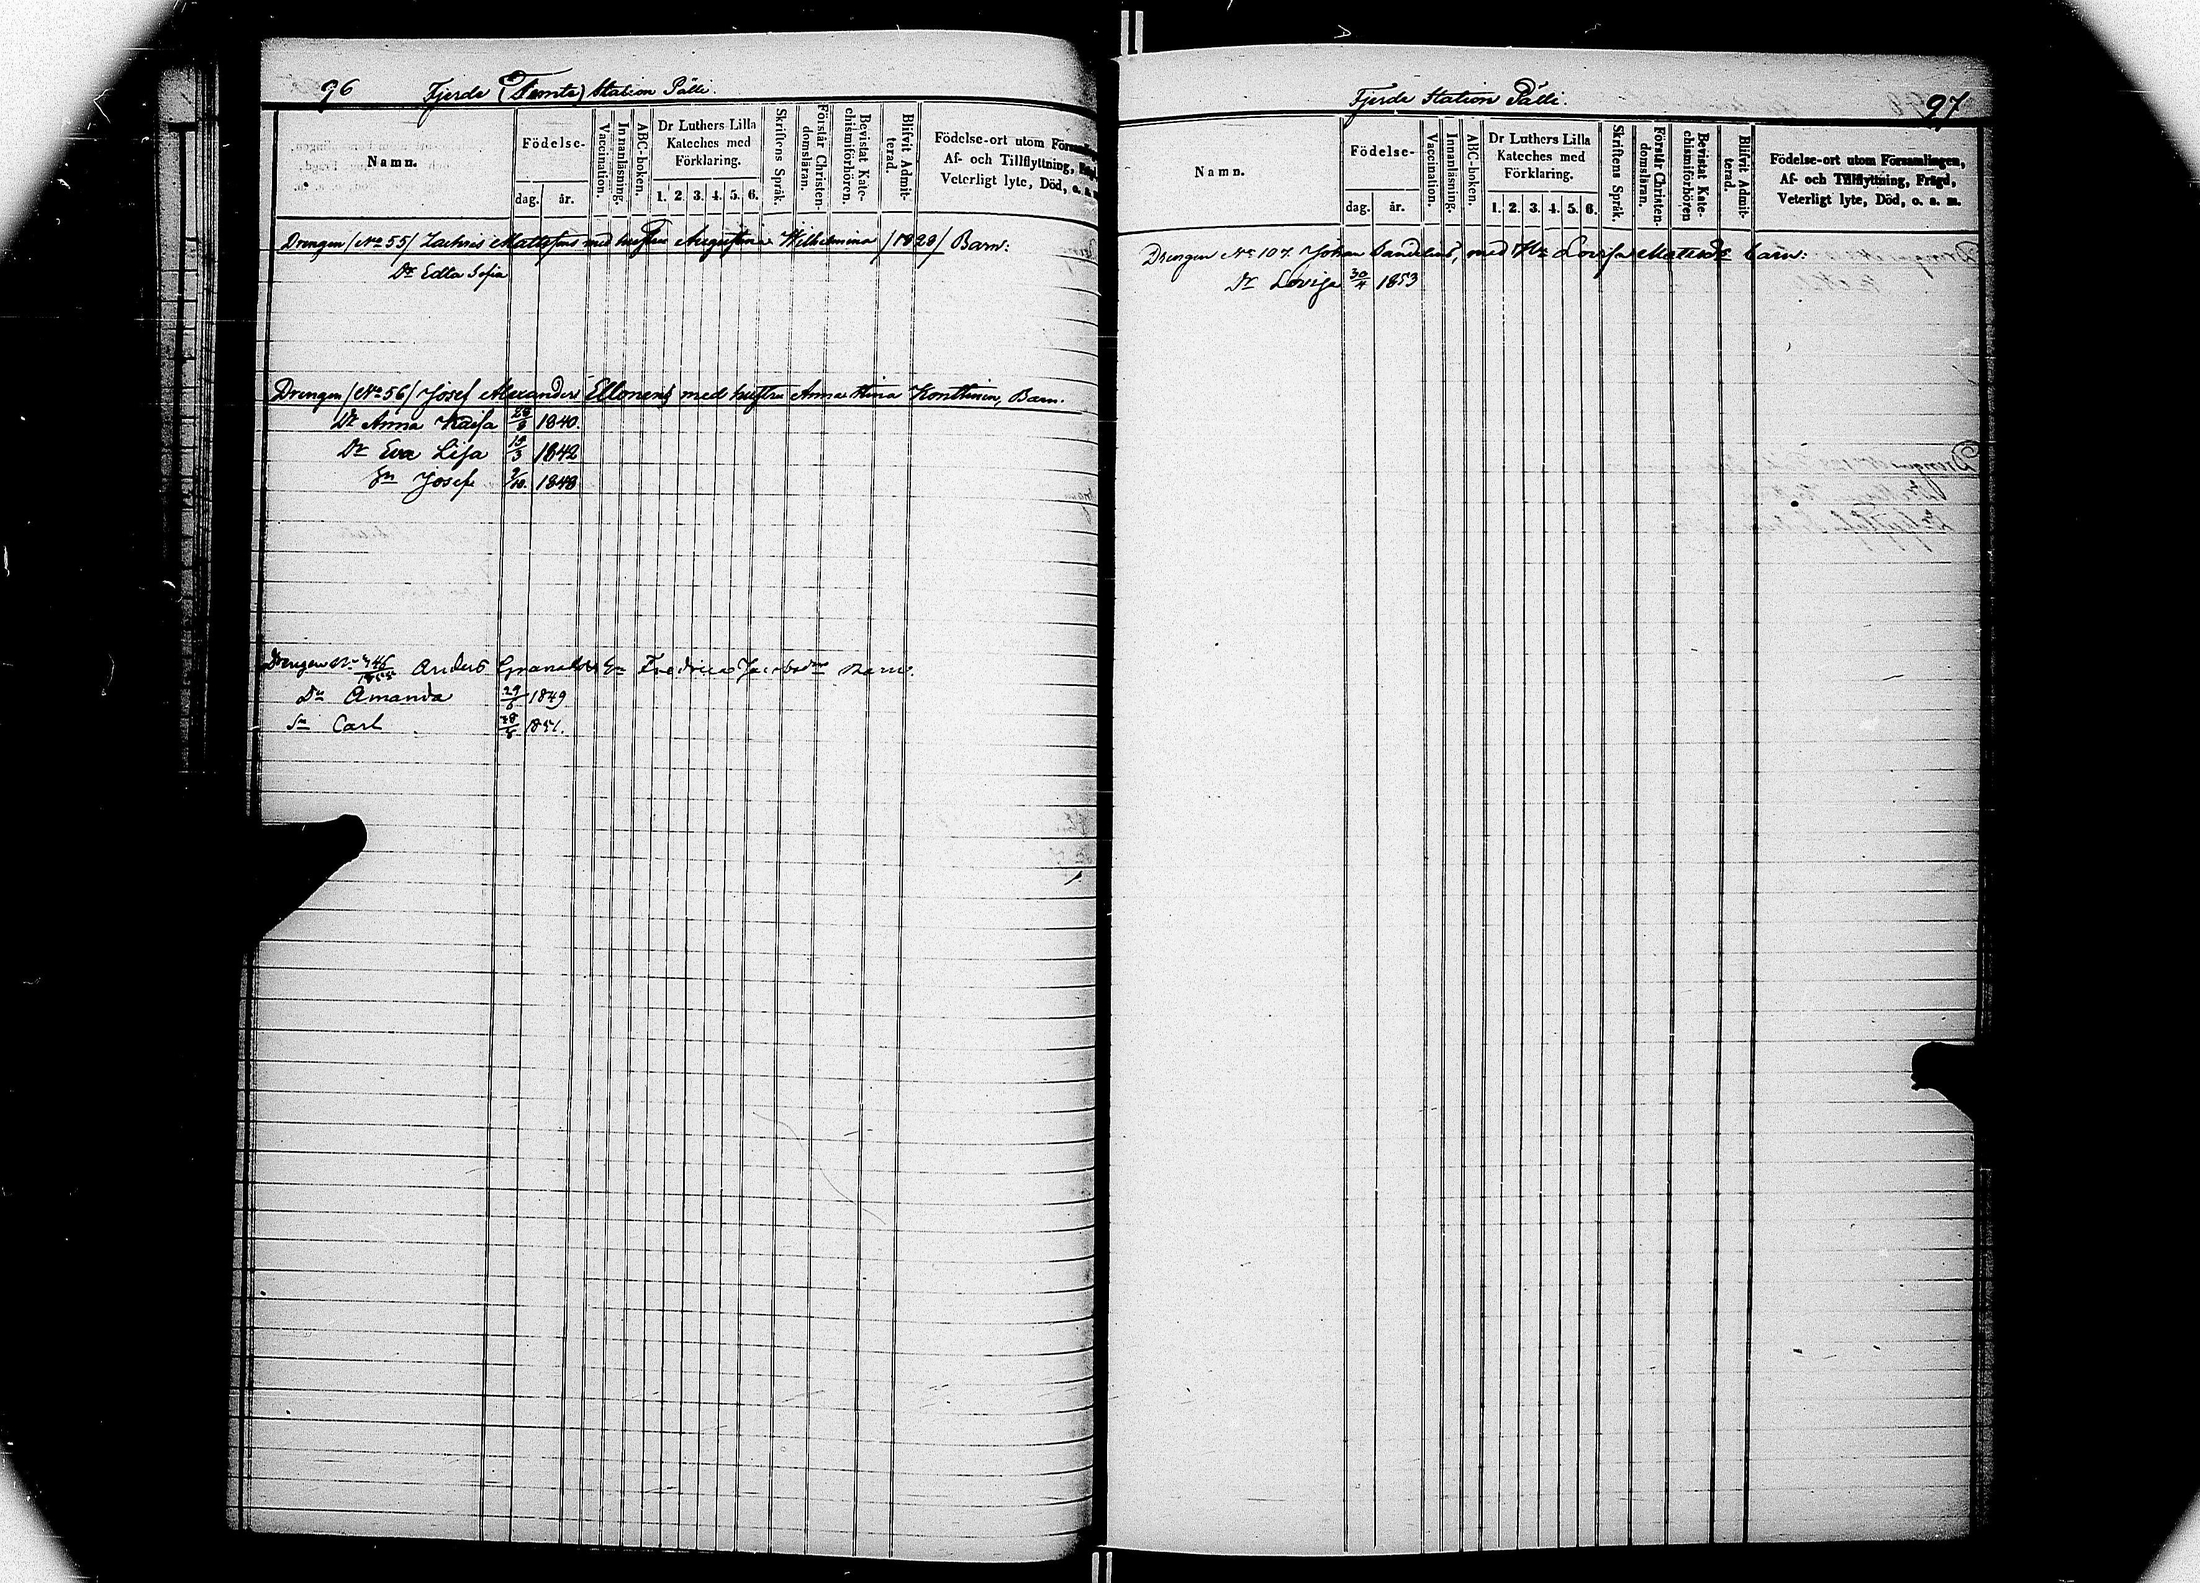 96 Fjerde (Femte) Station Pälli.
Namn.
Födelse-
dag. år.
Vaccination.
Innanläsning.
ABC-boken.
Dr Luthers Lilla
Kateches med
Förklaring.
1. 2. 3. 4. 5. 6.
Skriftens Språk.
Förstår Christen-
domsläran.
Bevistat Kate-
chismiförhören.
Blifvit Admit-
terad.
Födelse-ort utom Försam
Af- och Tillflyttning,
Veterligt lyte, Död, o. a. m
Drengen (No 55) Zachris Mattsons med hustru Augustina Wilhelmina (1828) Barn:
Dr Edla Sofia
Drengen (No 56) Josef Alexander Ellonens med hustru Anna Stina Konttinen, Barn.
Dr Anna Kaisa 1840.
Dr Eva Lisa 15/3 1842
Sn Josef 9/10. 1848
Drengen No Anders Hu Fredrica Barn.
Dr Amanda 29/6 1849
Sn Carl 1851.
Fjerde Station Pälli. 97
Namn.
Födelse-
dag. år.
Vaccination.
Innanläsning.
ABC-boken.
Dr Luthers Lilla
Kateches med
Förklaring.
1. 2. 3. 4. 5. 6.
Skriftens Språk.
Förstår Christen-
domsläran.
Bevistat Kate-
chismiförhören
Blifvit Admit-
terad.
Födelse-ort utom Församlingen,
Af- och Tillflyttning, Frägd,
Veterligt lyte, Död, o. a. m.
Drengen No 107. Johan Sanderlins, med Hu Lovisa Matilda barn:
Dr Lovisa 30/4 1853